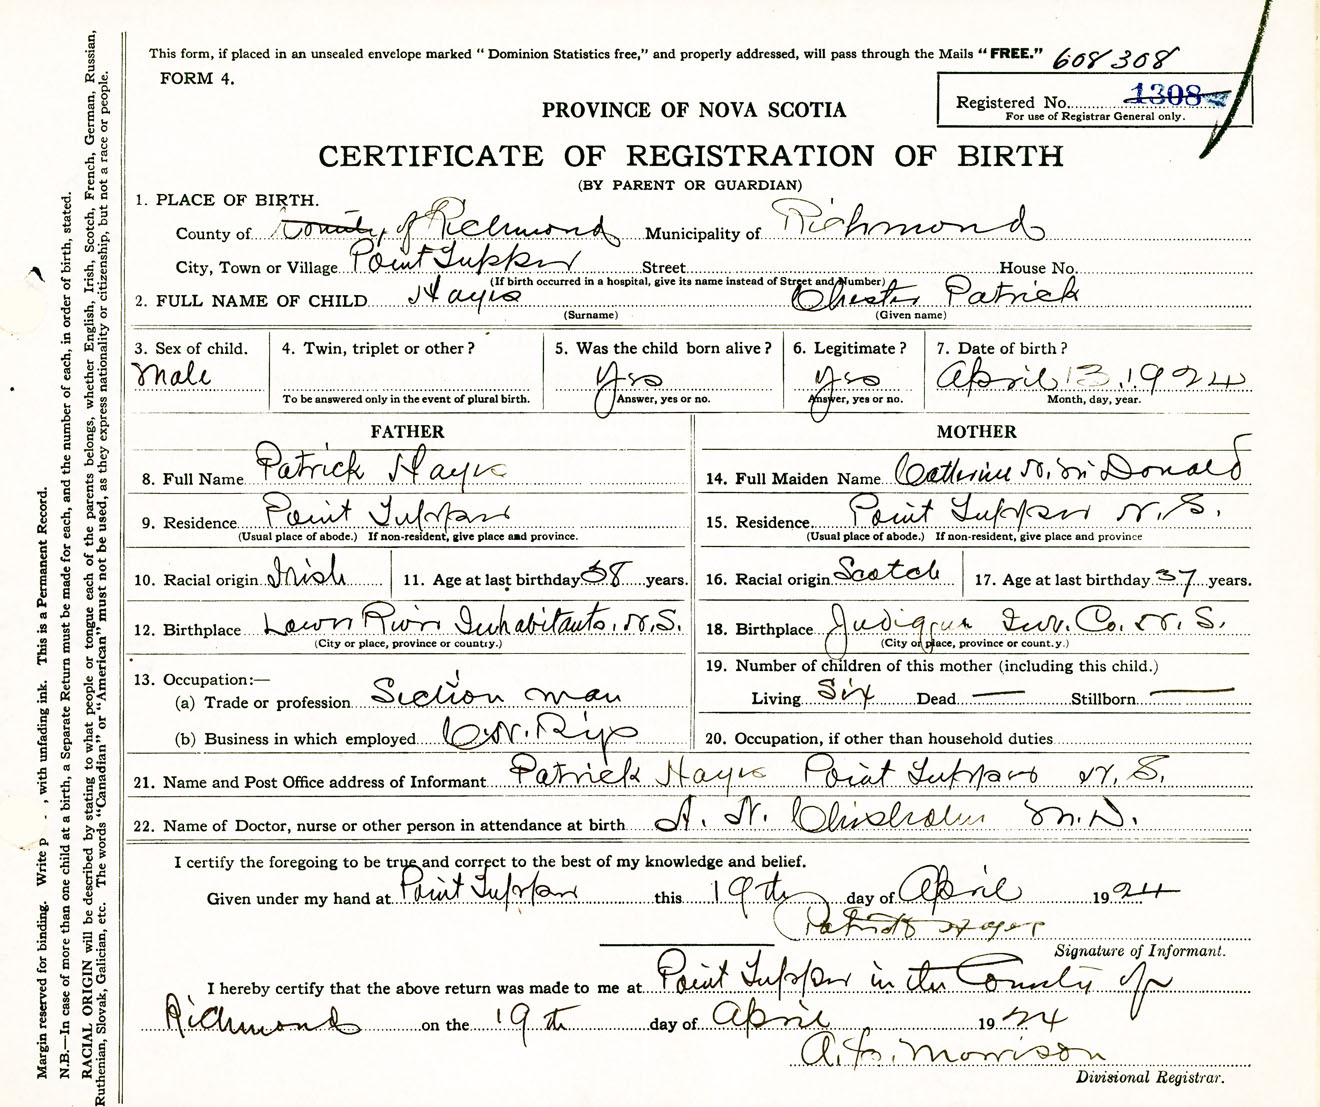 This form, if placed in an unsealed envelope marked "Dominion Statistics free," and properly addressed, will pass through the Mails "FREE." 608308
FORM 4.
PROVINCE OF NOVA SCOTIA
Registered No. 1308
For use of Registrar General only.
CERTIFICATE OF REGISTRATION OF BIRTH
(BY PARENT OR GUARDIAN)
1. PLACE OF BIRTH.
County of County of Richmond Municipality of Richmond
City, Town or Village Point Tupper Street House No.
(If birth occurred in a hospital, give its name instead of Street and Number)
2. FULL NAME OF CHILD Hayes Chester Patrick
(Surname) (Given name)
3. Sex of child. 4. Twin, triplet or other? 5. Was the child born alive? 6. Legitimate? 7. Date of birth?
Male Yes yes April 13. 1924
To be answered only in the event of plural birth. Answer, yes or no. Answer, yes or no. Month, day, year.
FATHER MOTHER
8. Full Name Patrick Hayes 14. Full Maiden Name Catherine N. McDonald
9. Residence Point Tupper 15. Residence. Point Tupper N.S.
(Usual place of abode.) If non-resident, give place and province. (Usual place of abode.) If non-resident, give place and province
10. Racial origin Irish 11. Age at last birthday 38 years. 16. Racial origin Scotch 17. Age at last birthday 37 years.
12. Birthplace Lower River Inhabitants, N.S. 18. Birthplace Judique Inv. Co. N.S.
(City or place, province or country.) (City or place, province or count.y.)
19. Number of children of this mother (including this child.)
13. Occupation:—
(a) Trade or profession Section man Living Six Dead — Stillborn —
(b) Business in which employed C.N. Rys 20. Occupation, if other than household duties
21. Name and Post Office address of Informant Patrick Hayes Point Tupper N.S.
22. Name of Doctor, nurse or other person in attendance at birth A. N. Chisholm M.D.
I certify the foregoing to be true and correct to the best of my knowledge and belief.
Given under my hand at Point Tupper this 19th day of April 1924
Patrick Hayes
Signature of Informant.
I hereby certify that the above return was made to me at Point Tupper in the County of
Richmond on the 19th day of April 1924
A. Morrison
Divisional Registrar.
Margin reserved for binding. Write p , with unfading ink. This is a Permanent Record.
N.B.—In case of more than one child at a birth, a Separate Return must be made for each, and the number of each, in order of birth, stated.
RACIAL ORIGIN will be described by stating to what people or tongue each of the parents belongs, whether English, Irish, Scotch, French, German, Russian,
Ruthenian, Slovak, Galician, etc. The words "Canadian" or "American" must not be used, as they express nationality or citizenship, but not a race or people.